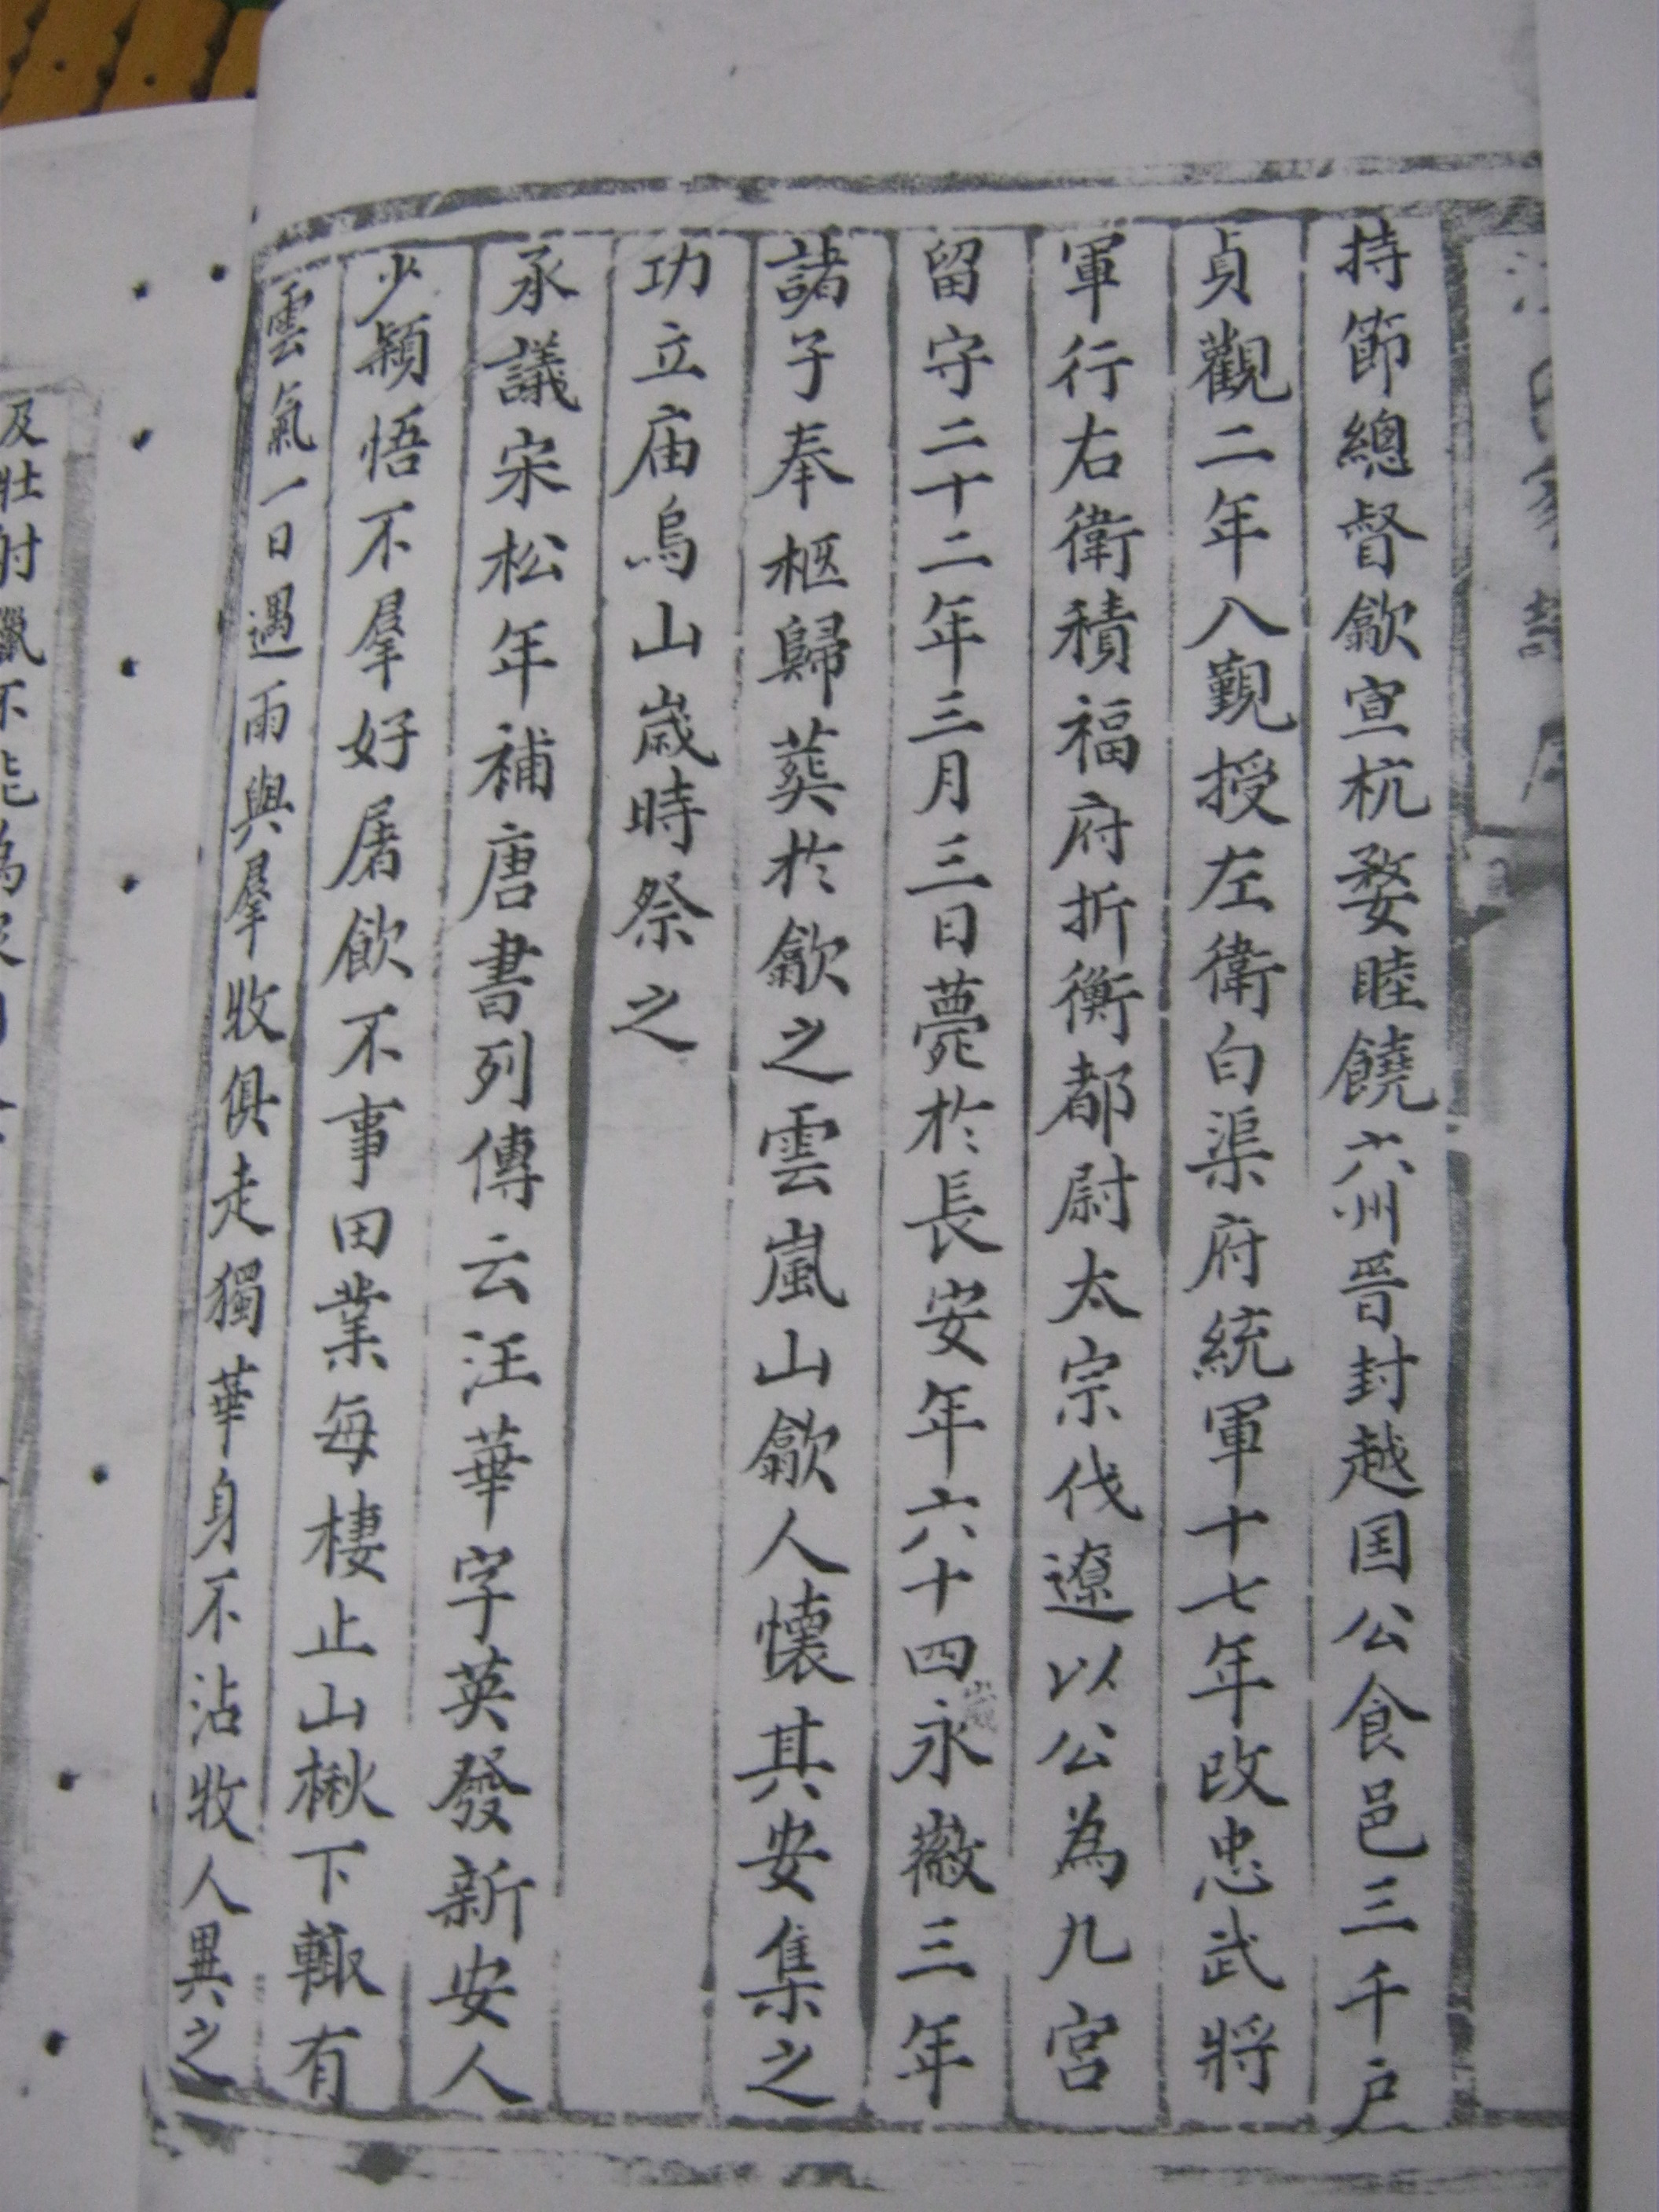 持節總督歙宣杭婺睦饒六州晉封越国公食邑三千户
貞觀二年入觐授左衛白渠府統軍十七年改忠武將
軍行右衛積福府折衝都尉太宗伐遼以公為九宮
留守二十二年三月三日薨於長安年六十四歲永徽三年
諸子奉柩歸葬於歙之雲嵐山歙人懷其安集之
功立庙烏山歲時祭之
承議宋松年補唐書列傳云汪華字英發新安人
少穎悟不羣好屠飲不事田業每棲止山楸下輙有
雲氣一日遇雨與羣牧俱走獨華身不沾牧人異之
及壯射獵不能為